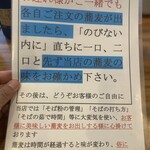 各自ご注文の蕎麦が出
ましたら、「のびない
内に」直ちに一口、二
口と先ず当店の蕎麦の
味をお確かめ下さい。
その後は、どうぞお客様のご自由に
当店では「そば粉の管理」「そばの打ち方」
「そばの茹で時間」等に大変気を使い、お
客様に美味しい蕎麦をお出しする様に心掛けて
おります
蕎麦は時間が経過すると味が変わり、